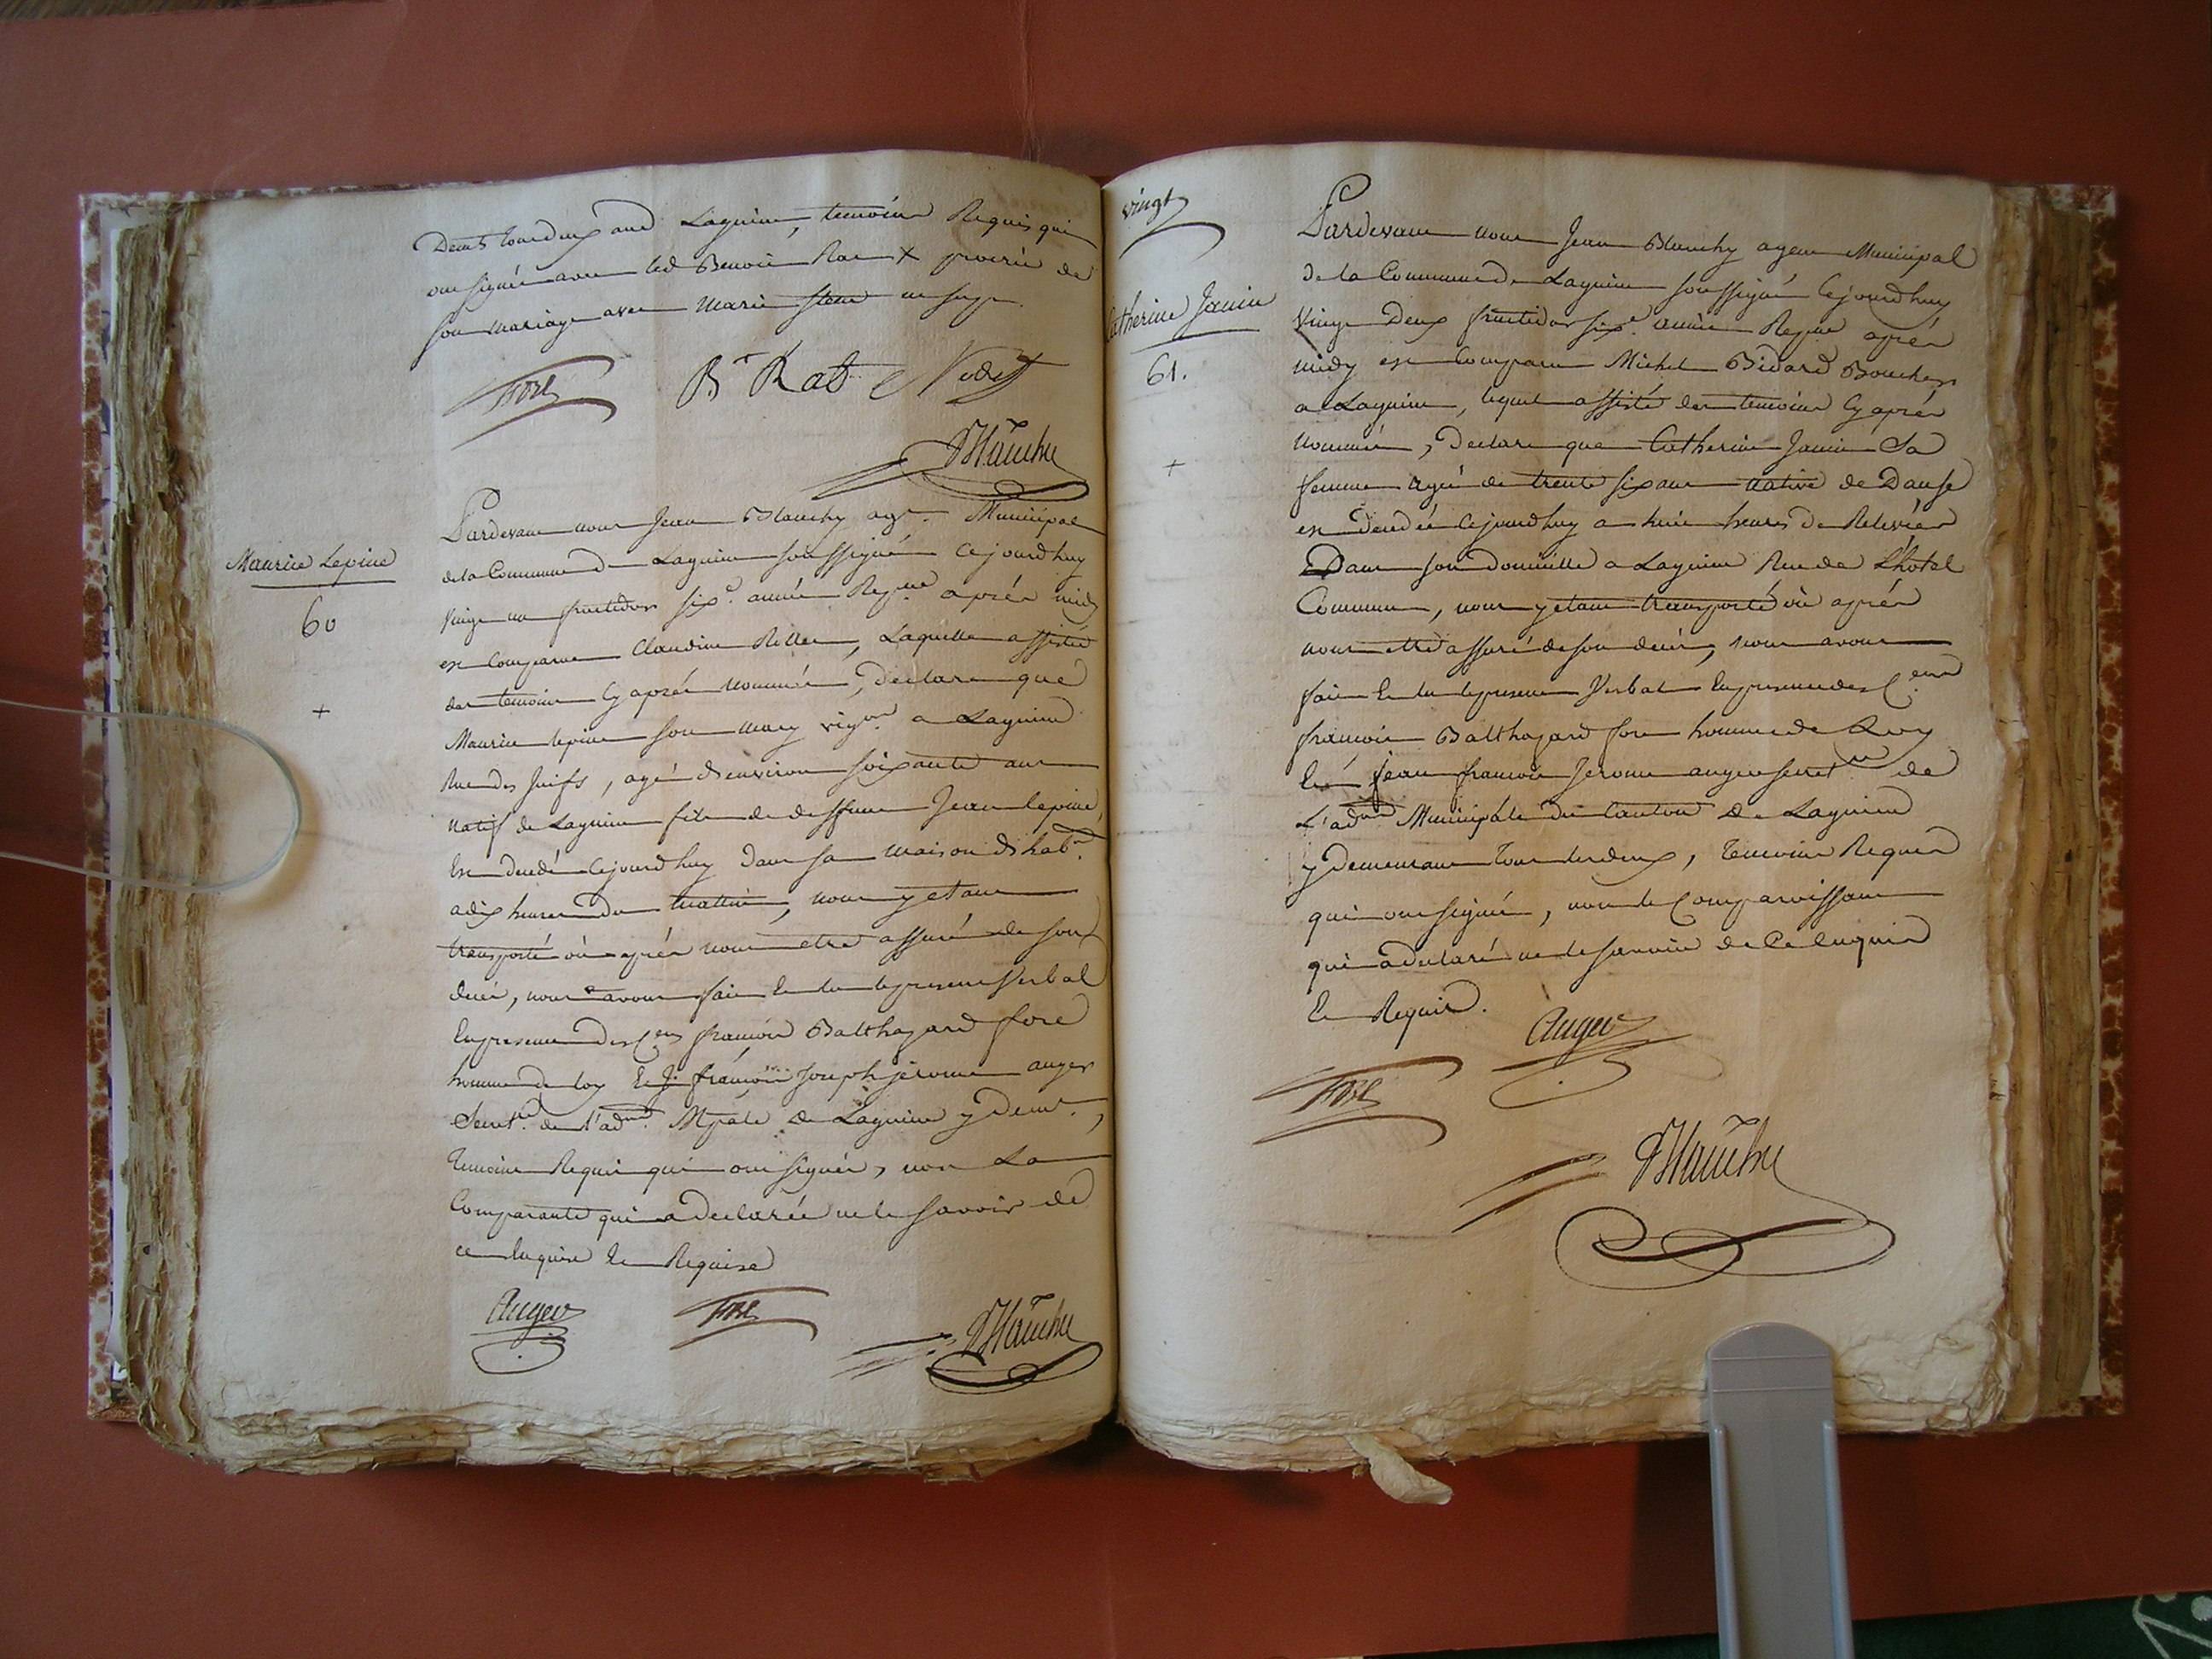 Demts tous deux aud Lagnieu, temoins Requis qui
ont signés avec led Benoit Rat X procréé de
son mariage avec Marie
fore B.t Rat Nodet
Blanchy
Maurice Lepine
60
+
Pardevant nous Jean Blanchy agt. Municipal
de la Commune de Lagnieu soussigné Cejourdhuy
vingt un fructidor sixe. année Repne après midy
est Comparue Claudine Rillet, Laquelle assistée
des temoins Cy après nommés, declare que
Maurice lepine son mary vigon a Lagnieu
Rue des Juifs, agé d'environ soixante ans
natif de Lagnieu fils de deffunt Jean lepine,
Est decedé Cejourdhuy dans sa maison d'habon
a dix heures du mattin, nous y etant
transporté où après nous etre assuré de son
decès, nous avons fait Et lu le present Verbal
En presence des Cens francois Balthazard fore
homme de loy Et Jn francois Joseph jerome auger
Secretre de l'adon Mpale de Lagnieu y Demt,
temoins Requis qui ont signés, non La
Comparante qui a declarée ne le savoir de
ce Enquise Et Requise
Auger fore Blanchy
vingt
Catherine Janin
61.
+
Pardevant nous Jean Blanchy agent Municipal
de la Commune de Lagnieu soussigné Cejourdhuy
Vingt Deux fructidor sixe. année Repne après
midy est Comparu Michel Bidard Boucher
a Lagnieu, lequel assisté des temoins Cy après
nommés, Declare que Catherine Janin Sa
femme agée de trente six ans native de
est decedée Cejourdhuy a huit heures de Relevée
Dans son Domicille a Lagnieu Rue de L'hotel
Commun, nous y etant transporté où après
nous etre assuré de son decès, nous avons
fait Et lu le present Verbal En presence des Cens
francois Balthazard fore homme de Loy
Et jean francois Jerome auger secretre de
L'adon Municipale du Canton de Lagnieu
y Demeurant tous les deux, temoins Requis
qui ont signés, non le Comparoissant
qui a declaré ne le savoir de Ce Enquis
Et Requis.
Auger
fore
Blanchy